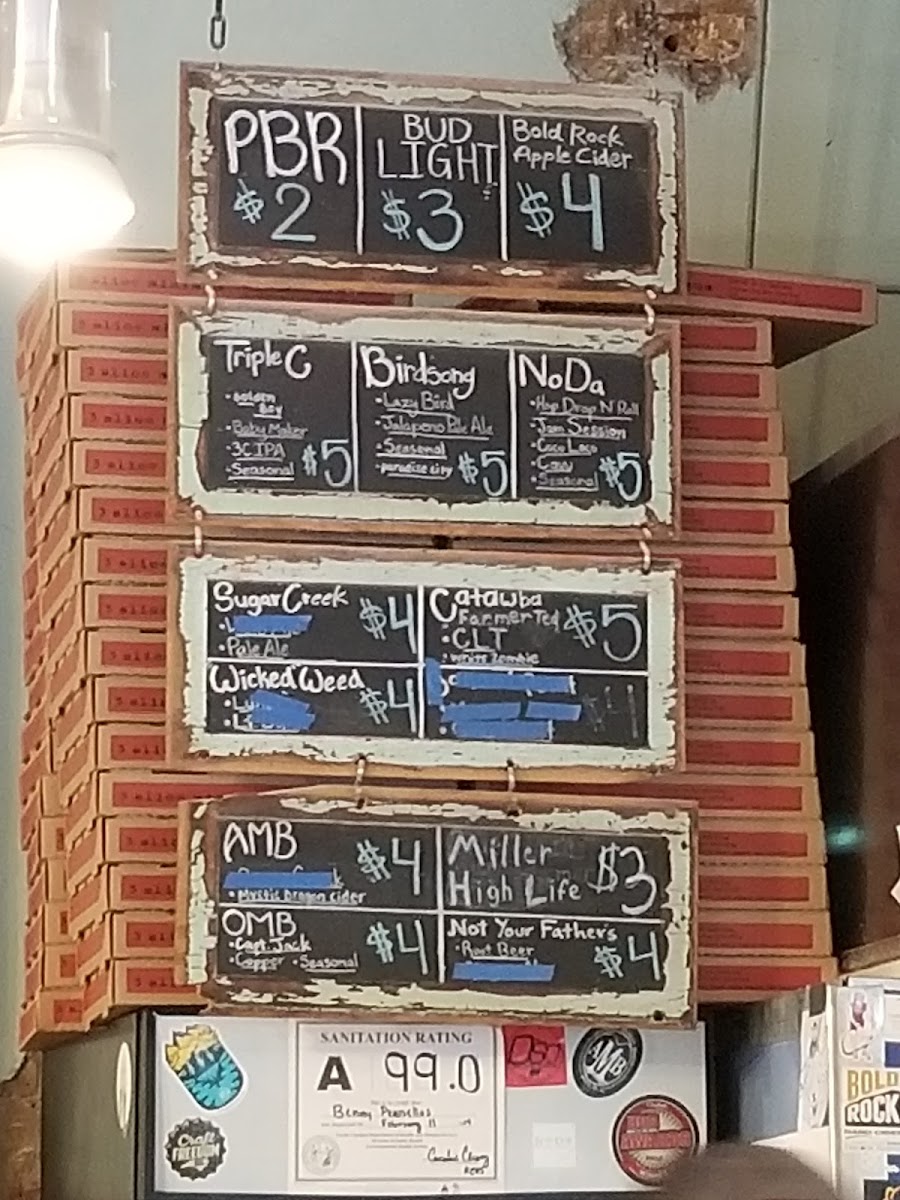 PBR
$2
BUD
LIGHT
$3
Bold Rock
Apple Cider
$4
Triple C
• Golden
Boy
• Baby Maker
• 3C IPA
• Seasonal
$5
Birdsong
• Lazy Bird
• Jalapeno Pale Ale
• Seasonal
• paradise city
$5
NoDa
• Hop Drop N Roll
• Jam Session
• Coco Loco
• Cavu
• Seasonal
$5
Sugar Creek
• Pale Ale
$4
Catawba
• Farmer Ted
• CLT
• White Zombie
$5
Wicked Weed
$4
AMB
• Mystic Dragon cider
$4
Miller
High Life
$3
OMB
• Capt. Jack
• Copper • Seasonal
$4
Not Your Father's
• Root Beer
$4
SANITATION RATING
A 99.0
Benny Pennellos
February 11
AMB
Craft
FREEDOM
BOLD
ROCK